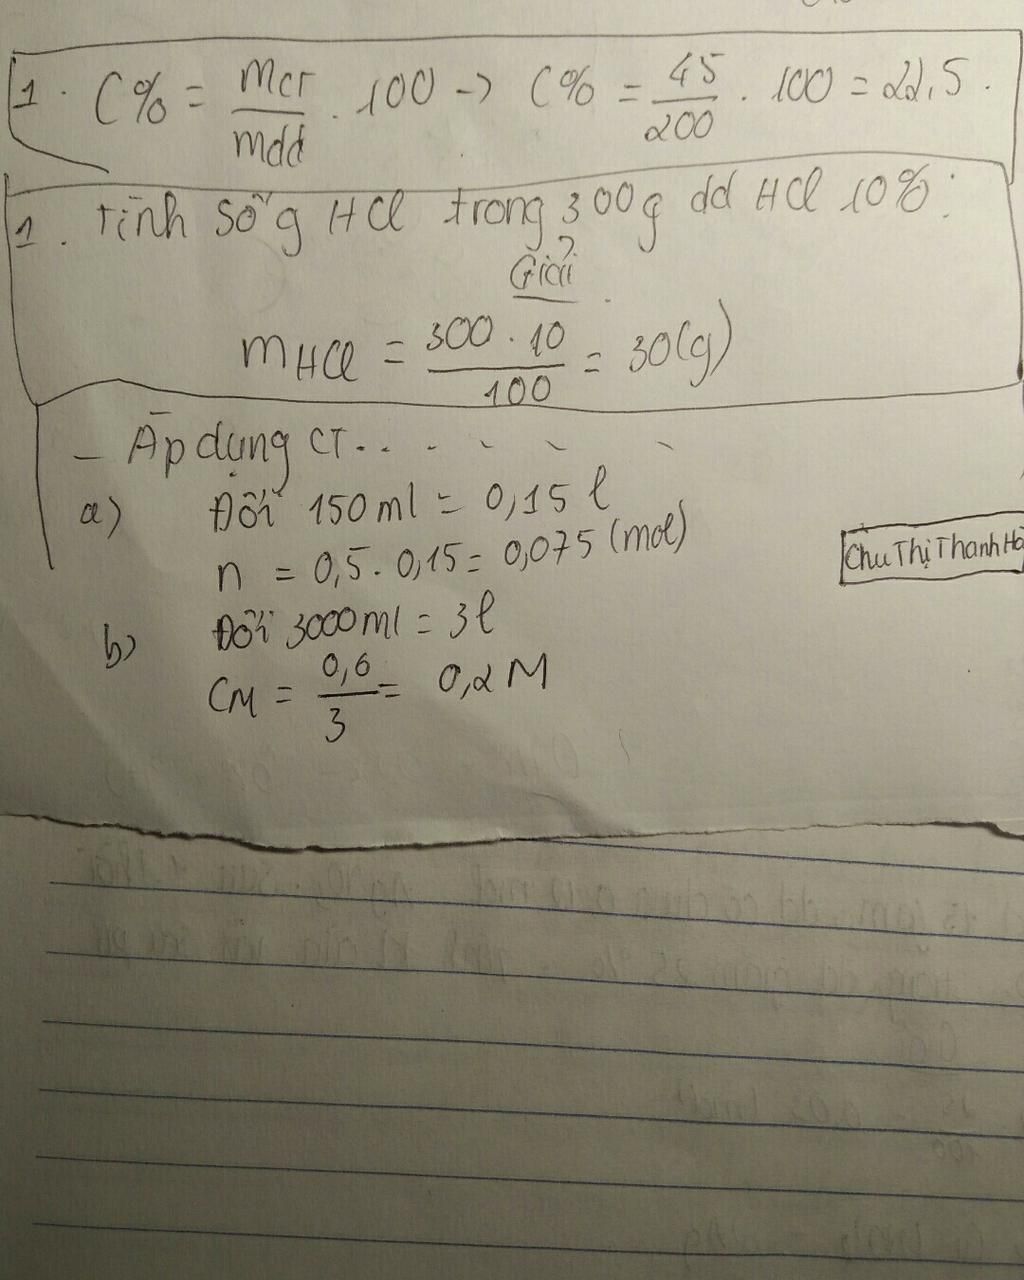 1. C% = mct/mdd . 100 -> C% = 45/200 . 100 = 22,5.
1. Tính số g HCl trong 300g dd HCl 10%:
Giải
mHCl = 300 . 10/100 = 30(g)
- Áp dụng CT....
a) Đổi 150ml = 0,15 l
n = 0,5. 0,15 = 0,075 (mol)
Chu Thị Thanh Hà
b) Đổi 3000ml = 3l
CM = 0,6/3 = 0,2 M